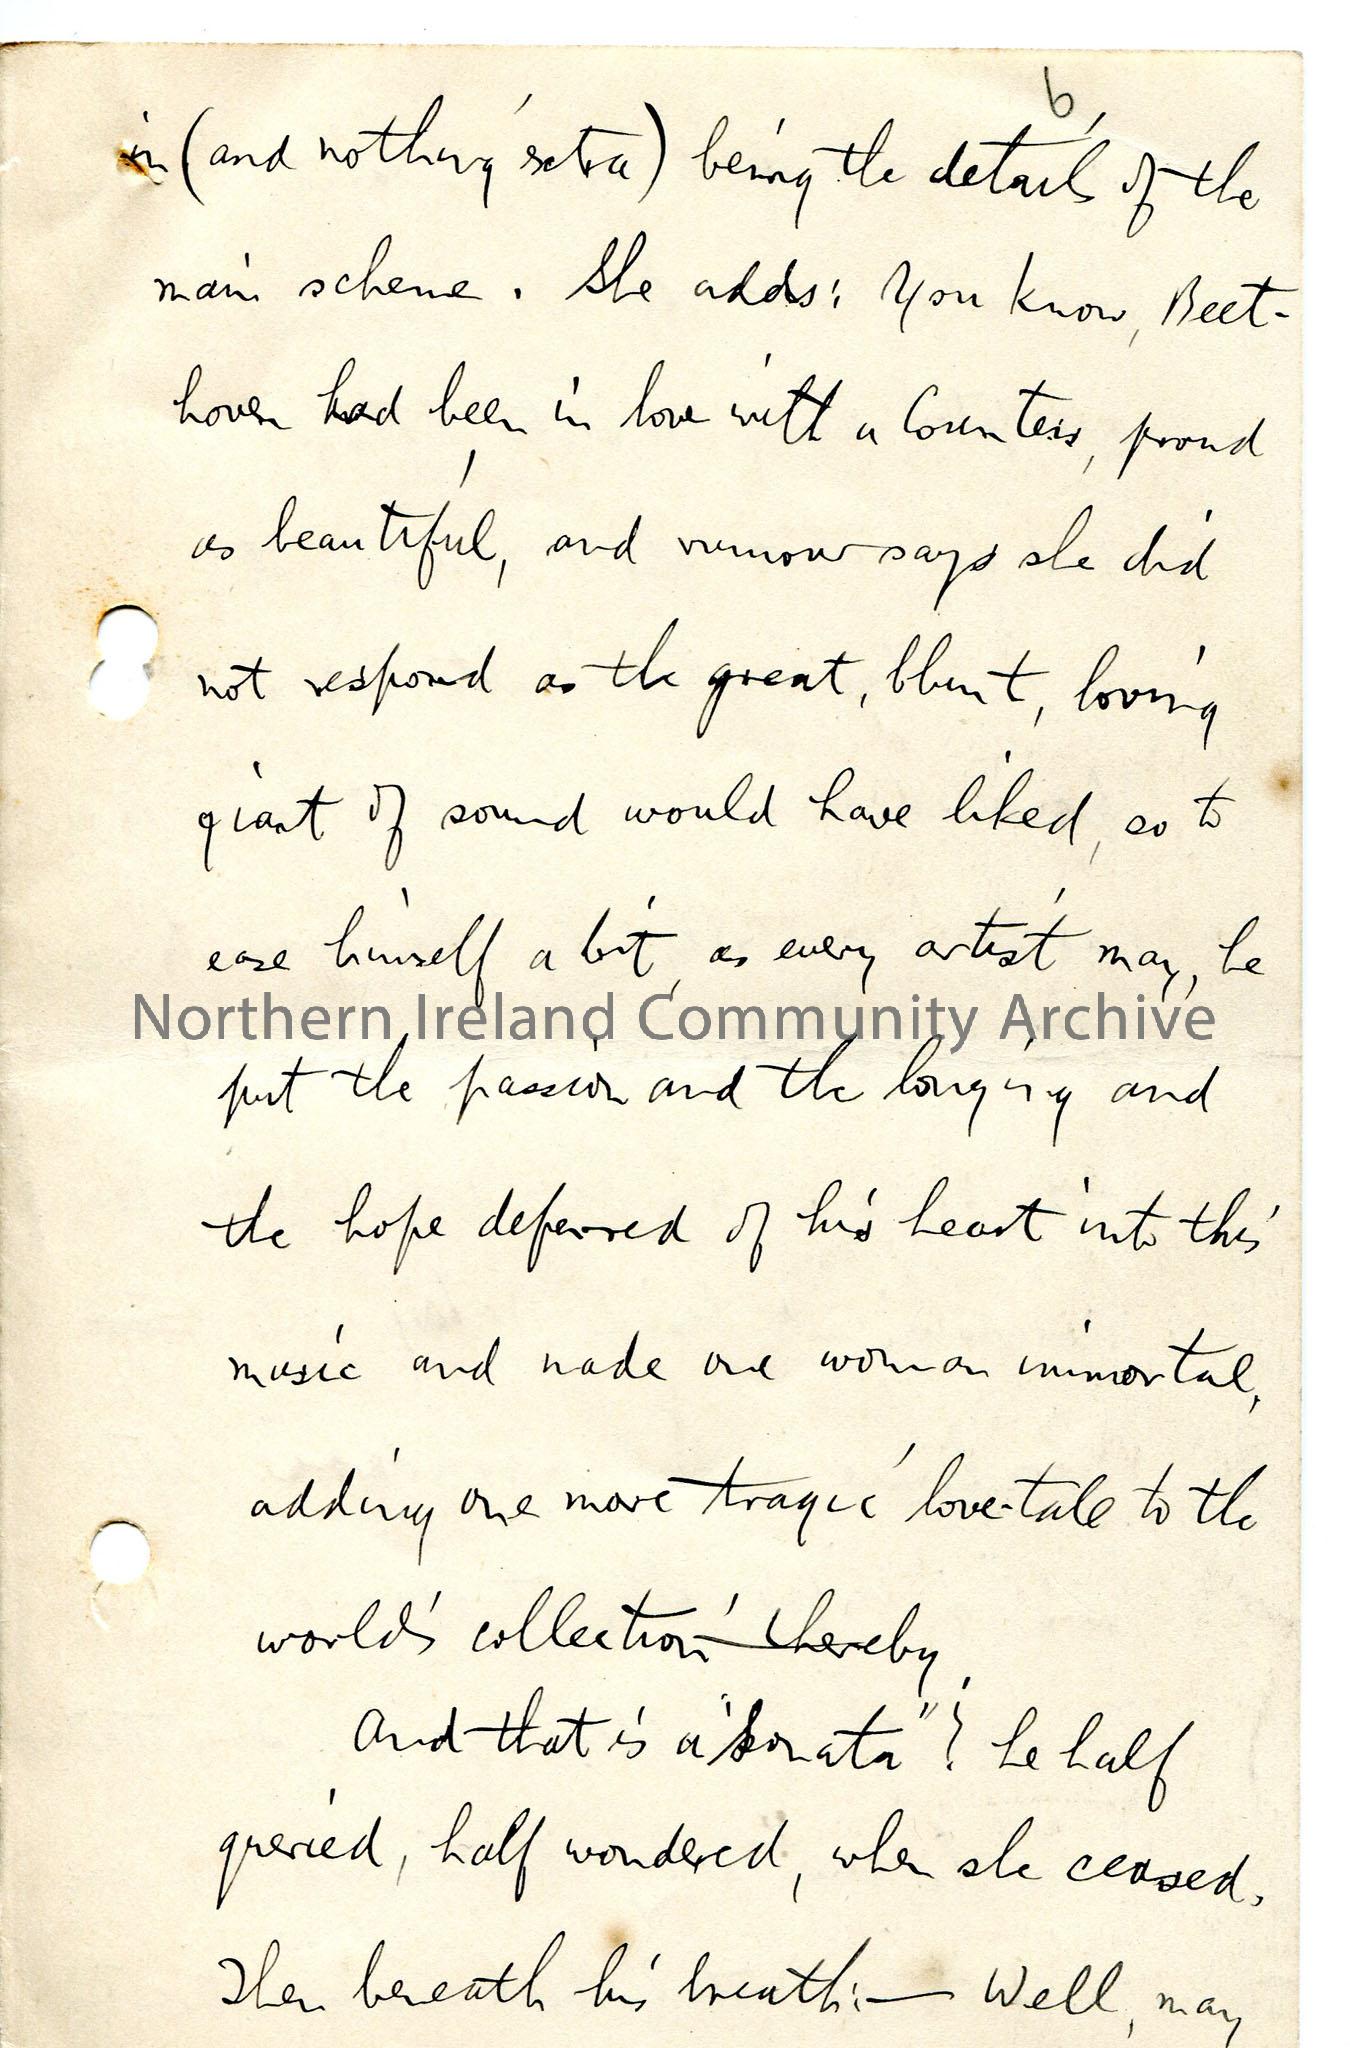 6
in (and nothing extra) being the details of the
main scheme. She adds: You know, Beet-
hoven had been in love with a Countess, proud
as beautiful, and rumour says she did
not respond as the great, blunt, loving
giant of sound would have liked, so to
ease himself a bit, as every artist may, he
Northern Ireland Community Archive
put the passion and the longing and
the hope deferred of his heart into this
music and made one woman immortal,
adding one more tragic love-tale to the
world's collection thereby.
And that is a "Sonata"? he half
queried, half wondered, when she ceased.
Then beneath his breath:— Well, may